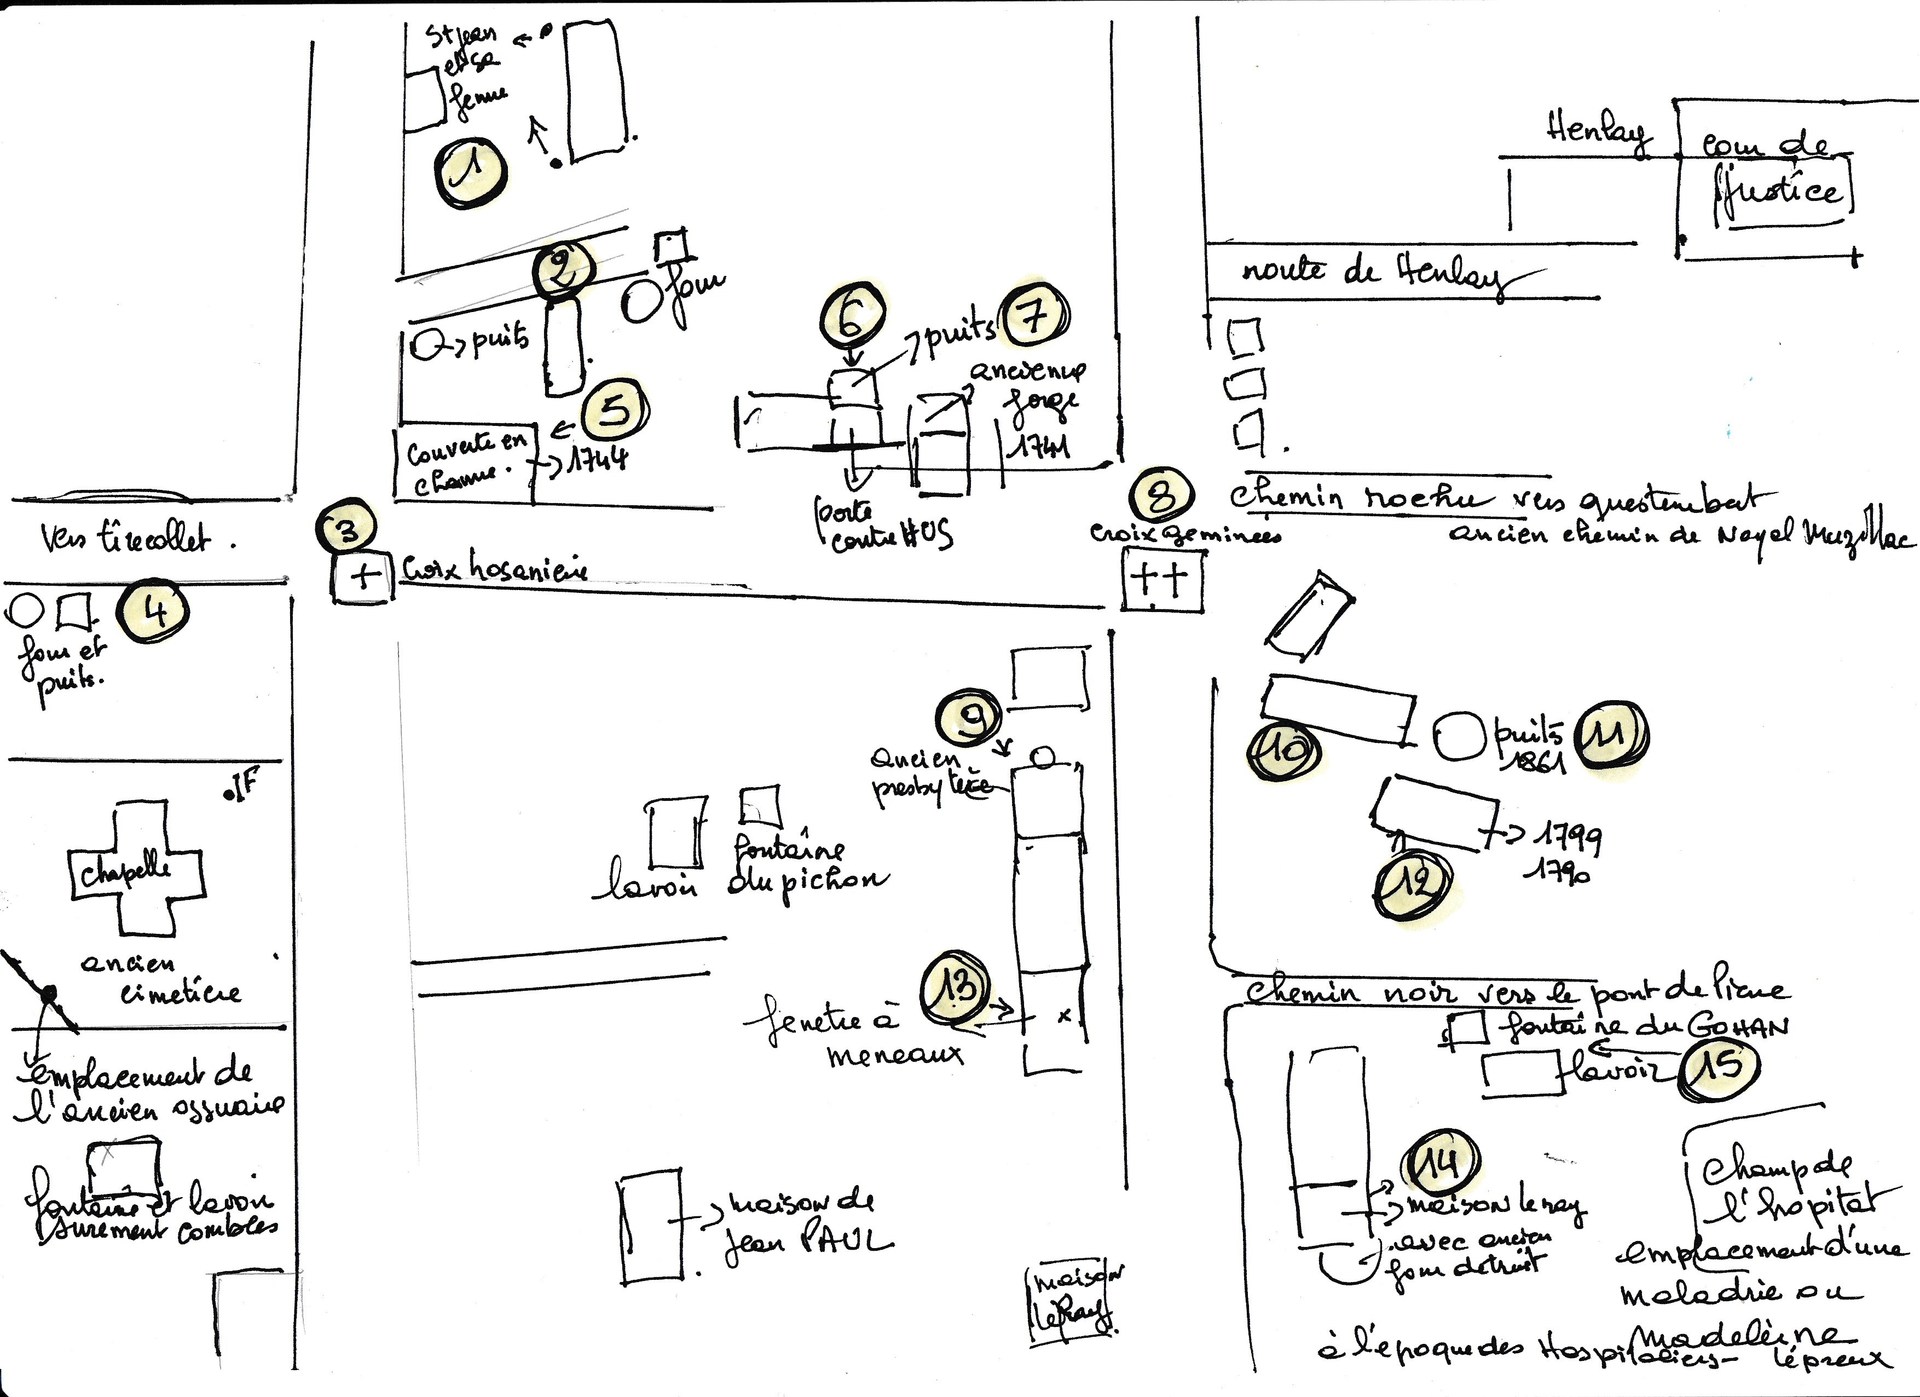 St Jean
et sa
femme
1
2
four
puits
5
couverte en
chaume.
1744
6
puits
7
ancienne
forge
1741
porte
contre HUS
Henlay
cour de
justice
route de Henlay
8
croix geminées
chemin rochu vers questembert
ancien chemin de Noyal Muzillac
vers tirecollet.
3
croix hosanière
4
four et
puits.
IF
chapelle
ancien
cimetière
emplacement de
l'ancien ossuaire
fontaine et lavoir
surement comblés
lavoir
fontaine
du pichon
9
ancien
presbytère
10
puits
1861
11
1799
1790
12
13
fenetre à
meneaux
chemin noir vers le pont de
fontaine du GOHAN
lavoir
15
14
maison le ray
avec ancien
four detruit
maison de
Jean PAUL
maison
le Ray
champ de
l'hopital
emplacement d'une
maladrie ou
Madeleine
à l'époque des Hospitaliers - lépreux